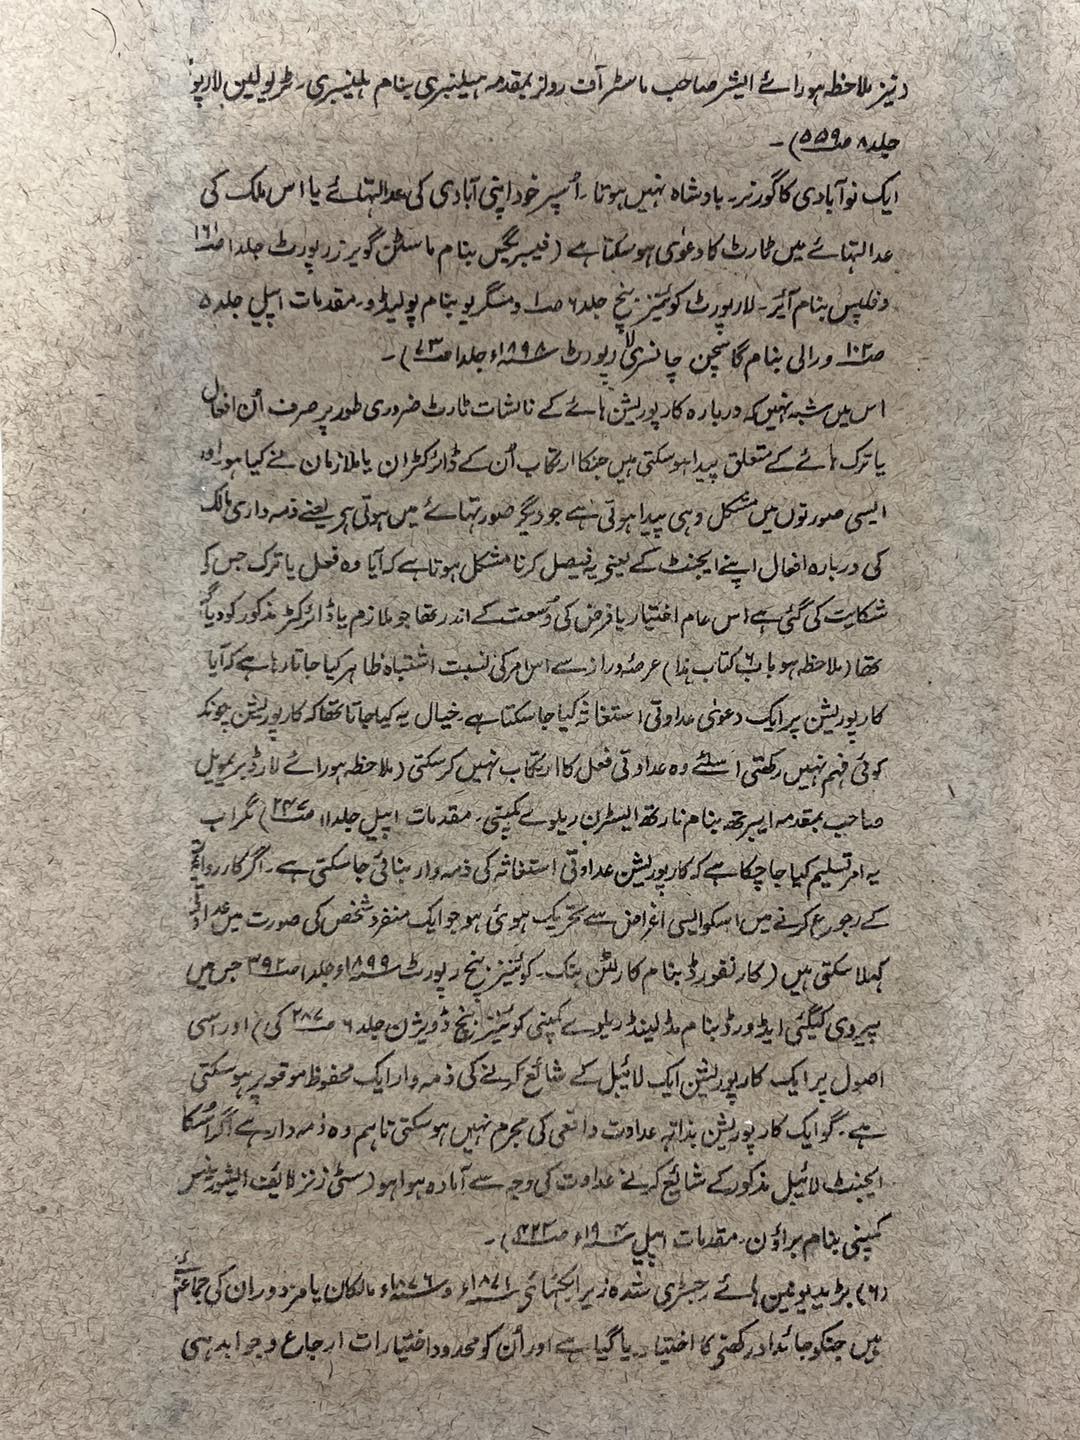 دنیز ملاحظہ ہو رائے ایشر صاحب ماسٹر آف رولز بمقدمہ ہیلنبری بنام ہلینبری۔ ٹریولیین لارپو
جلد ۸ صـ۵۵۹)۔
ایک نوآبادی کا گورنر۔ بادشاہ نہیں ہوتا۔ اُسپر خود اپنی آبادی کی عدالتہائے یا اس ملک کی
عدالتہائے میں ٹارٹ کا دعوٰی ہو سکتا ہے (فیبریگیس بنام ماسٹن کوپرز رپورٹ جلد ا صـ۱۶۱
و فلپس بنام آئر۔ لارپورٹ کوئینز بنچ جلد ۶ صـ۱ و مسگریو بنام پولیڈو۔ مقدمات اپیل جلد ۵
صـ۱۰۲ ورالی بنام گاسچن چانسری لا رپورٹ سنہ۱۸۹۸ء جلد ا صـ۷۳)۔
اس میں شبہ نہیں کہ دربارہ کارپوریشن ہائے کے نالشات ٹارٹ ضروری طور پر صرف اُن افعال
یا ترک ہائے کے متعلق پیدا ہو سکتی ہیں جنکا ارتکاب اُن کے ڈائرکٹران یا ملازمان نے کیا ہو اور
ایسی صورتوں میں مشکل وہی پیدا ہوتی ہے جو دیگر صورتہائے میں ہوتی ہے یعنے ذمہ داری مالک
کی دربارہ افعال اپنے ایجنٹ کے یعنی یہ فیصل کرنا مشکل ہوتا ہے کہ آیا وہ فعل یا ترک جس کی
شکایت کی گئی ہے اس عام اختیار یا فرض کی وُسعت کے اندر تھا جو ملازم یا ڈائرکٹر مذکور کو دیا گیا
تھا (ملاحظہ ہو باب ۶ کتاب ہذا) عرصۂ دراز سے اس امر کی نسبت اشتباہ ظاہر کیا جاتا رہا ہے کہ آیا
کارپوریشن پر ایک دعوٰی عداوتی استغاثہ کیا جا سکتا ہے۔ خیال یہ کیا جاتا تھا کہ کارپوریشن چونکہ
کوئی فہم نہیں رکھتی اسلئے وہ عداوتی فعل کا ارتکاب نہیں کر سکتی (ملاحظہ ہو رائے لارڈ بریمویل
صاحب بمقدمہ ایبرتھ بنام نارتھ ایسٹرن ریلوے کمپنی۔ مقدمات اپیل جلد ۱۱ صـ۲۴۷) مگر اب
یہ امر تسلیم کیا جا چکا ہے کہ کارپوریشن عداوتی استغاثہ کی ذمہ وار بنائی جا سکتی ہے۔ اگر کارروائی
کے رجوع کرنے میں اسکو ایسی اغراض سے تحریک ہوئی ہو جو ایک منفرد شخص کی صورت میں عداوتی
کہلا سکتی ہیں (کارنفورڈ بنام کارلٹن بنک۔ کوئینز بنچ رپورٹ سنہ۱۸۹۹ء جلد ا صـ۳۹۲ جس میں
پیروی کیگئی ایڈورڈ بنام مڈلینڈ ریلوے کمپنی کوئینز بنچ ڈویژن جلد ۶ صـ۲۸۷ کی) اور اسی
اصول پر ایک کارپوریشن ایک لائیبل کے شائع کرنے کی ذمہ وار ایک محفوظ موقعہ پر ہو سکتی
ہے۔ گو ایک کارپوریشن بذاتہ عداوت واقعی کی مجرم نہیں ہو سکتی تاہم وہ ذمہ دار ہے اگر اُسکا
ایجنٹ لائیبل مذکور کے شائع کرنے عداوت کی وجہ سے آمادہ ہوا ہو (سٹی زنز لائف ایشورنس
کمپنی بنام براؤن۔ مقدمات اپیل سنہ۱۹۰۴ء صـ۴۲۳)۔
(۶) ٹریڈ یونین ہائے رجسٹری شدہ زیر ایکٹہائی سنہ۱۸۷۱ء و سنہ۱۸۷۶ء مالکان یا مزدوران کی جماعتیں
ہیں جنکو جائداد رکھنے کا اختیار دیا گیا ہے اور اُن کو محدود اختیارات ارجاع و جوابدہی